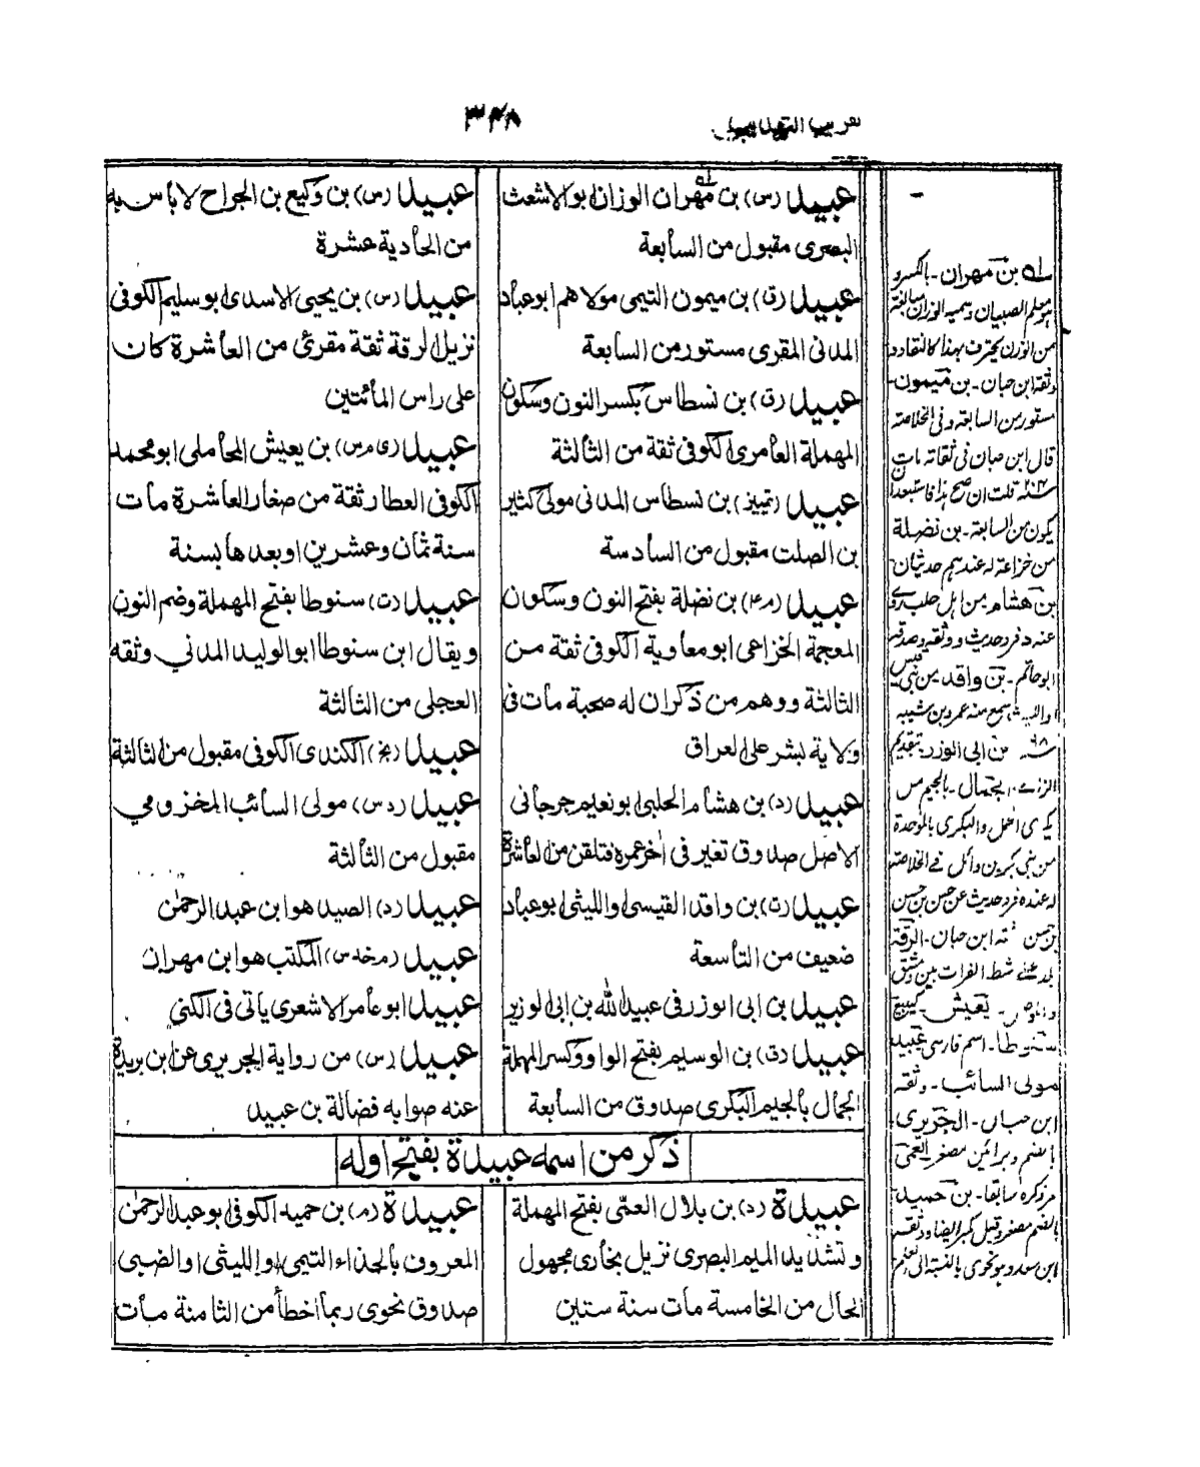 تقريب التهذيب
٣٤٨
عبيد (س) بن مهران الوزان ابو الاشعث
البصرى مقبول من السابعة
عبيد (ق) بن ميمون التيمى مولاهم ابو عباد
المدنى المقرى مستور من السابعة
عبيد (ق) بن نسطاس بكسر النون وسكون
المهملة العامرى الكوفى ثقة من الثالثة
عبيد (تمييز) بن نسطاس المدنى مولى كثير
بن الصلت مقبول من السادسة
عبيد (م٤) بن نضلة بفتح النون وسكون
المعجمة الخزاعى ابو معاوية الكوفى ثقة من
الثالثة ووهم من ذكر ان له صحبة مات فى
ولاية بشر على العراق
عبيد (د) بن هشام الحلبى ابو نعيم جرجانى
الاصل صدوق تغير فى اخر عمره فتلقن من العاشرة
عبيد (ت) بن واقد القيسى او الليثى ابو عباد
ضعيف من التاسعة
عبيد بن ابى الوزر فى عبيد الله بن ابى الوزير
عبيد (ق) بن الوسيم بفتح الواو وكسر المهملة
الجمال بالجيم البكرى صدوق من السابعة
عبيد (س) بن وكيع بن الجراح لا باس به
من الحادية عشرة
عبيد (س) بن يحيى الاسدى ابو سليم الكوفى
نزيل الرقة ثقة مقرئ من العاشرة كان
على راس المائتين
عبيد (ى م س) بن يعيش المحاملى ابو محمد
الكوفى العطار ثقة من صغار العاشرة مات
سنة ثمان وعشرين او بعدها بسنة
عبيد (ت) سنوطا بفتح المهملة وضم النون
ويقال ابن سنوطا ابو الوليد المدني وثقه
العجلى من الثالثة
عبيد (بخ) الكندى الكوفى مقبول من الثالثة
عبيد (د س) مولى السائب المخزومي
مقبول من الثالثة
عبيد (د) الصيد هو ابن عبد الرحمٰن
عبيد (م خد س) المكتب هو ابن مهران
عبيد ابو عامر الاشعرى ياتى فى الكنى
عبيد (س) من رواية الجريرى عن ابن بريدة
عنه صوابه فضالة بن عبيد
ذكر من اسمه عبيدة بفتح اوله
عبيدة (د) بن بلال العمّى بفتح المهملة
وتشديد الميم البصرى نزيل بخارى مجهول
الحال من الخامسة مات سنة ستين
عبيدة (م) بن حميد الكوفى ابو عبد الرحمٰن
المعروف بالحذاء التيمى او الليثى او الضبى
صدوق نحوى ربما اخطأ من الثامنة مات
له بن مهران - بالكسر و
هو معلم الصبيان وسميه الوزان مبالغة
من الوزن يحترف بهذا كالنقاد و
وثقه ابن حبان - بن ميمون -
مستور من السابعة وفى الخلاصة
قال ابن حبان فى ثقاته مات
قلت ان صح هذا فاستبعد ان
يكون من السابعة - بن نضلة
من خزاعة له عندهم حديثان -
بن هشام من اهل حلب
عنه د فرد حديث ووثقه وصدقه
ابو حاتم - بن واقد من بنى قيس
سمع منه عمر بن شبيه
بن ابى الوزر بتقديم
الجمال - بالجيم
والبكرى بالموحدة
من بنى بكر بن وائل فى الخلاصة
له عنده فرد حديث عن حسن بن حسن
بن حسن ابن حبان - الرقة
شط الفرات بين دمشق
يعيش - كيبيع
سنوطا - اسم فارسى عبيد
مولى السائب - وثقه
ابن حبان - الجريرى
بالضم وبرائين مصغر العمى
مر ذكره سابقا - بن حميد -
بالضم مصغر وقيل كبر ايضا وثقه
ابن سعد وهو نحوى بالنسبة الى